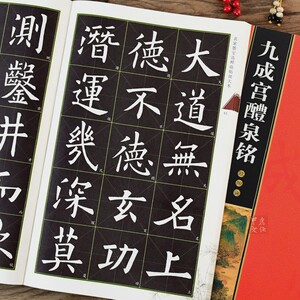 大道無名上
德不德玄功
潛運幾深莫
測鑿井而
九成宫醴泉铭